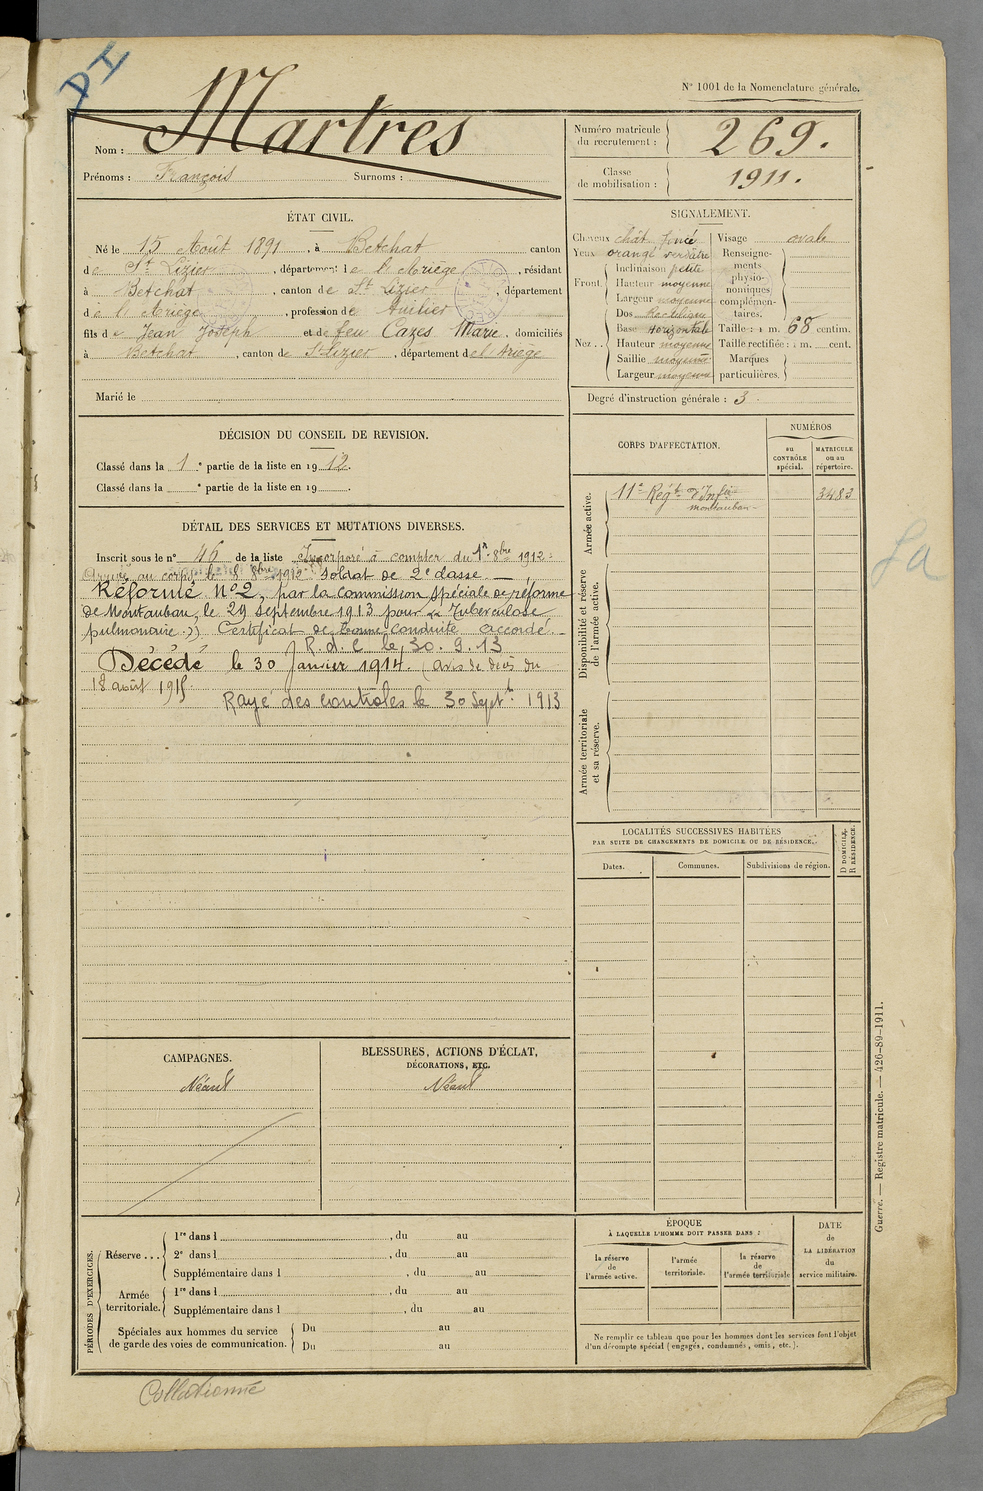 DI
N° 1001 de la Nomenclature générale.
Nom : Martres
Prénoms : François Surnoms :
Numéro matricule du recrutement : 269.
Classe de mobilisation : 1911.
ÉTAT CIVIL.
Né le 15 Août 1891, à Betchat canton
de St Lizier, département de l'Ariège, résidant
à Betchat, canton de St Lizier, département
de l'Ariège, profession de
fils de Jean Joseph et de feu Cazes Marie, domiciliés
à Betchat, canton de St Lizier, département de l'Ariège
Marié le
SIGNALEMENT.
Cheveux chât foncé
Yeux orangé verdâtre
Front. Inclinaison petite
Hauteur moyenne
Largeur moyenne
Nez... Dos Rectiligne
Base Horizontale
Hauteur moyenne
Saillie moyenne
Largeur moyenne
Visage ovale
Renseignements physionomiques complémentaires.
Taille : 1 m. 68 centim.
Taille rectifiée : 1 m. cent.
Marques particulières.
Degré d'instruction générale : 3
DÉCISION DU CONSEIL DE REVISION.
Classé dans la 1 e partie de la liste en 1912.
Classé dans la e partie de la liste en 19 .
CORPS D'AFFECTATION.
NUMÉROS
au CONTRÔLE spécial.
MATRICULE ou au répertoire.
Armée active.
11e Régt d'Infie 3483
montauban
Disponibilité et réserve de l'armée active.
Armée territoriale et sa réserve.
DÉTAIL DES SERVICES ET MUTATIONS DIVERSES.
Inscrit sous le n° 46 de la liste Incorporé à compter du 1r 8bre 1912
Arrivé au corps le 8 8bre 1912 Soldat de 2e classe.
Réformé N°2, par la commission spéciale de réforme
de Montauban, le 29 septembre 1913 pour Tuberculose
pulmonaire.)) Certificat de bonne conduite accordé.
R. d. C le 30. 9. 13
Décédé le 30 Janvier 1914. (avis de décès du
18 août 1915.
Rayé des contrôles le 30 Septbre 1913
La
LOCALITÉS SUCCESSIVES HABITÉES
PAR SUITE DE CHANGEMENTS DE DOMICILE OU DE RÉSIDENCE.
Dates.
Communes.
Subdivisions de région.
D DOMICILE. R RÉSIDENCE.
CAMPAGNES.
Néant
BLESSURES, ACTIONS D'ÉCLAT,
DÉCORATIONS, ETC.
Néant
PÉRIODES D'EXERCICES.
Réserve... 1re dans l , du au
2e dans l , du au
Supplémentaire dans l , du au
Armée territoriale. 1re dans l , du au
Supplémentaire dans l , du au
Spéciales aux hommes du service de garde des voies de communication. Du au
Du au
ÉPOQUE
À LAQUELLE L'HOMME DOIT PASSER DANS :
la réserve de l'armée active.
l'armée territoriale.
la réserve de l'armée territoriale
DATE DE LA LIBÉRATION du service militaire.
Ne remplir ce tableau que pour les hommes dont les services font l'objet
d'un décompte spécial (engagés, condamnés, omis, etc.).
Guerre. — Registre matricule. — 426-89-1911.
Collationné